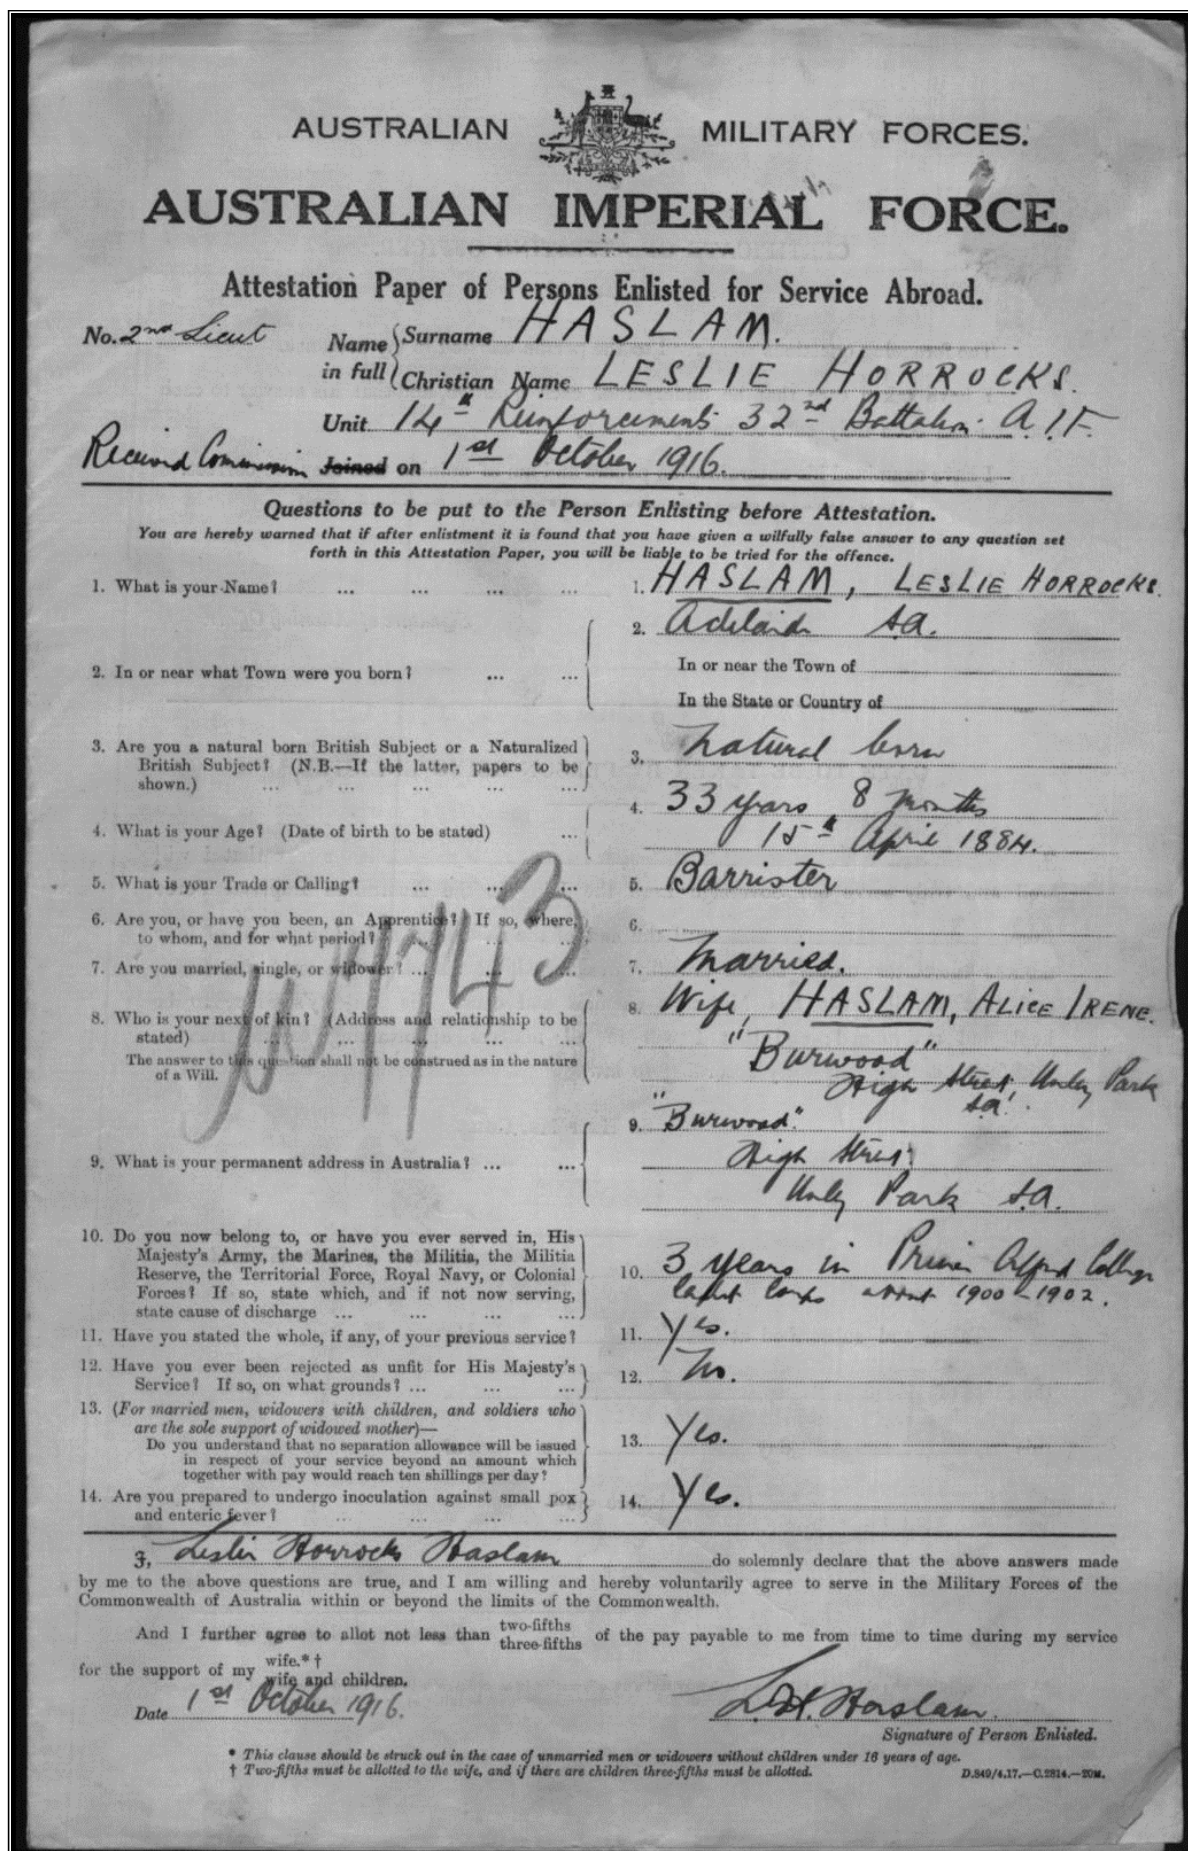 AUSTRALIAN MILITARY FORCES.
AUSTRALIAN IMPERIAL FORCE.
Attestation Paper of Persons Enlisted for Service Abroad.
No. 2nd Lieut Name in full Surname HASLAM.
Christian Name LESLIE HORROCKS.
Unit 14th Reinforcements 32nd Battalion A.I.F.
Received Commission Joined on 1st October 1916.
Questions to be put to the Person Enlisting before Attestation.
You are hereby warned that if after enlistment it is found that you have given a wilfully false answer to any question set
forth in this Attestation Paper, you will be liable to be tried for the offence.
1. What is your Name? ... ... ... ... 1. HASLAM, LESLIE HORROCKS.
2. Adelaide S.A.
2. In or near what Town were you born? ... ... In or near the Town of
In the State or Country of
3. Are you a natural born British Subject or a Naturalized
British Subject? (N.B.—If the latter, papers to be
shown.) ... ... ... ... ...
3. natural born
4. What is your Age? (Date of birth to be stated) ...
4. 33 years 8 months
15th April 1884.
5. What is your Trade or Calling? ... ... ... 5. Barrister
6. Are you, or have you been, an Apprentice? If so, where,
to whom, and for what period? ... ... ...
6.
7. Are you married, single, or widower? ... ... ... 7. Married.
8. Who is your next of kin? (Address and relationship to be
stated) ... ... ... ... ...
The answer to this question shall not be construed as in the nature
of a Will.
8. Wife, HASLAM, ALICE IRENE.
"Burwood"
High Street, Unley Park
S.A.
9. What is your permanent address in Australia? ... ...
9. "Burwood"
High Street
Unley Park S.A.
10. Do you now belong to, or have you ever served in, His
Majesty's Army, the Marines, the Militia, the Militia
Reserve, the Territorial Force, Royal Navy, or Colonial
Forces? If so, state which, and if not now serving,
state cause of discharge ... ... ... ...
10. 3 years in Prince Alfred College
Cadet Corps about 1900–1902.
11. Have you stated the whole, if any, of your previous service? 11. Yes.
12. Have you ever been rejected as unfit for His Majesty's
Service? If so, on what grounds? ... ... ...
12. No.
13. (For married men, widowers with children, and soldiers who
are the sole support of widowed mother)—
Do you understand that no separation allowance will be issued
in respect of your service beyond an amount which
together with pay would reach ten shillings per day?
13. Yes.
14. Are you prepared to undergo inoculation against small pox
and enteric fever? ... ... ... ...
14. Yes.
I, Leslie Horrocks Haslam do solemnly declare that the above answers made
by me to the above questions are true, and I am willing and hereby voluntarily agree to serve in the Military Forces of the
Commonwealth of Australia within or beyond the limits of the Commonwealth.
And I further agree to allot not less than two-fifths three-fifths of the pay payable to me from time to time during my service
for the support of my wife.*† wife and children.
Date 1st October 1916. L.H. Haslam.
Signature of Person Enlisted.
* This clause should be struck out in the case of unmarried men or widowers without children under 16 years of age.
† Two-fifths must be allotted to the wife, and if there are children three-fifths must be allotted. D.849/4.17.—C.2814.—20M.